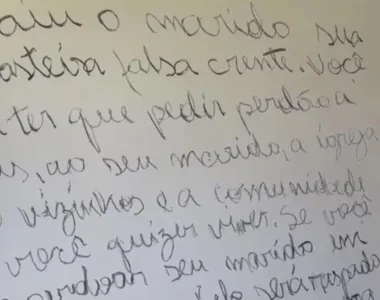 aiu o marido sua
asteira falsa crente. Você
ter que pedir perdão a
us, ao seu marido, a igreja
vizinhos e a comunidade
você quizer viver. Se você
perdoar seu marido um
será raspada